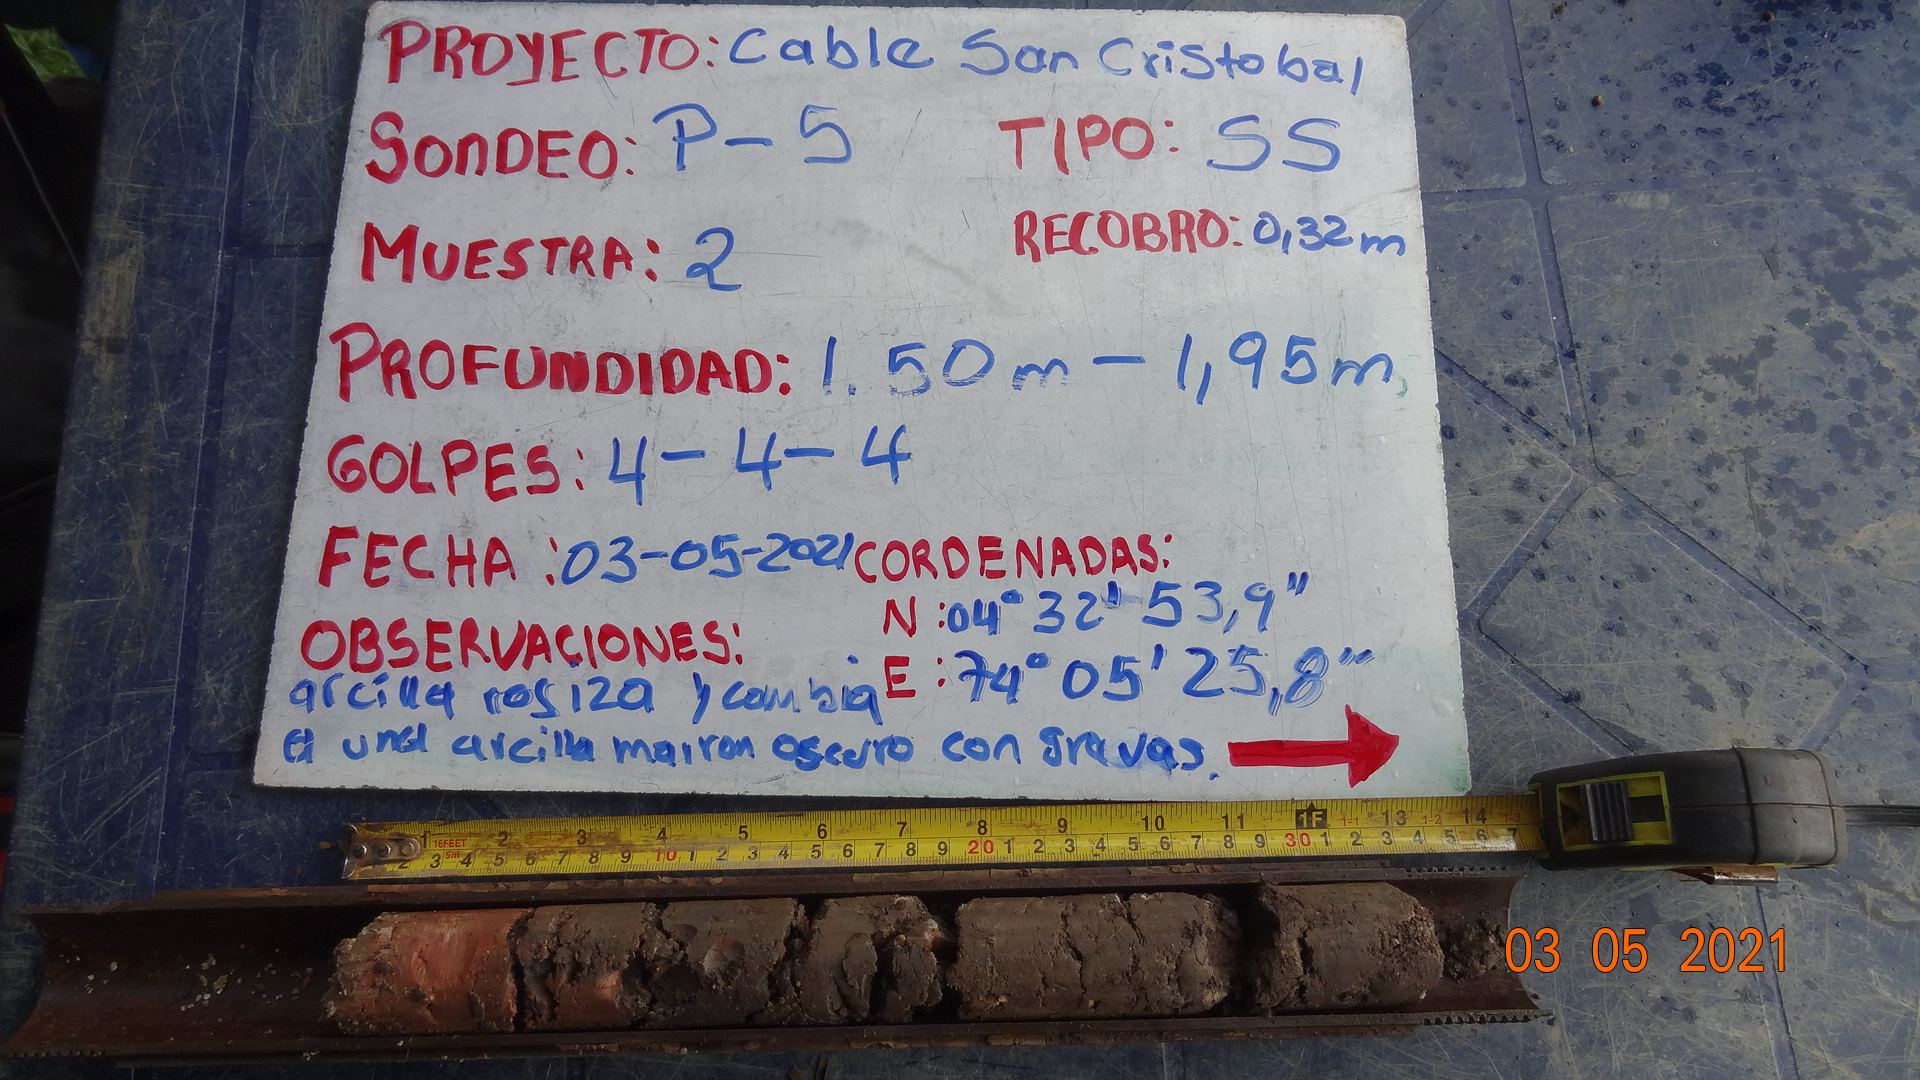 PROYECTO: Cable San Cristobal
SONDEO: P-5 TIPO: SS
MUESTRA: 2 RECOBRO: 0,32m
PROFUNDIDAD: 1.50m - 1,95m,
GOLPES: 4-4-4
FECHA: 03-05-2021 CORDENADAS:
N: 04° 32' 53,9"
OBSERVACIONES:
E: 74° 05' 25,8"
arcilla rosiza y cambia
a una arcilla marron oscuro con gravas.
1 2 3 4 5 6 7 8 9 10 11 1F 1-1 13 1-2 14 1-3
16FEET
5m
2 3 4 5 6 7 8 9 10 1 2 3 4 5 6 7 8 9 20 1 2 3 4 5 6 7 8 9 30 1 2 3 4 5 6 7
03 05 2021